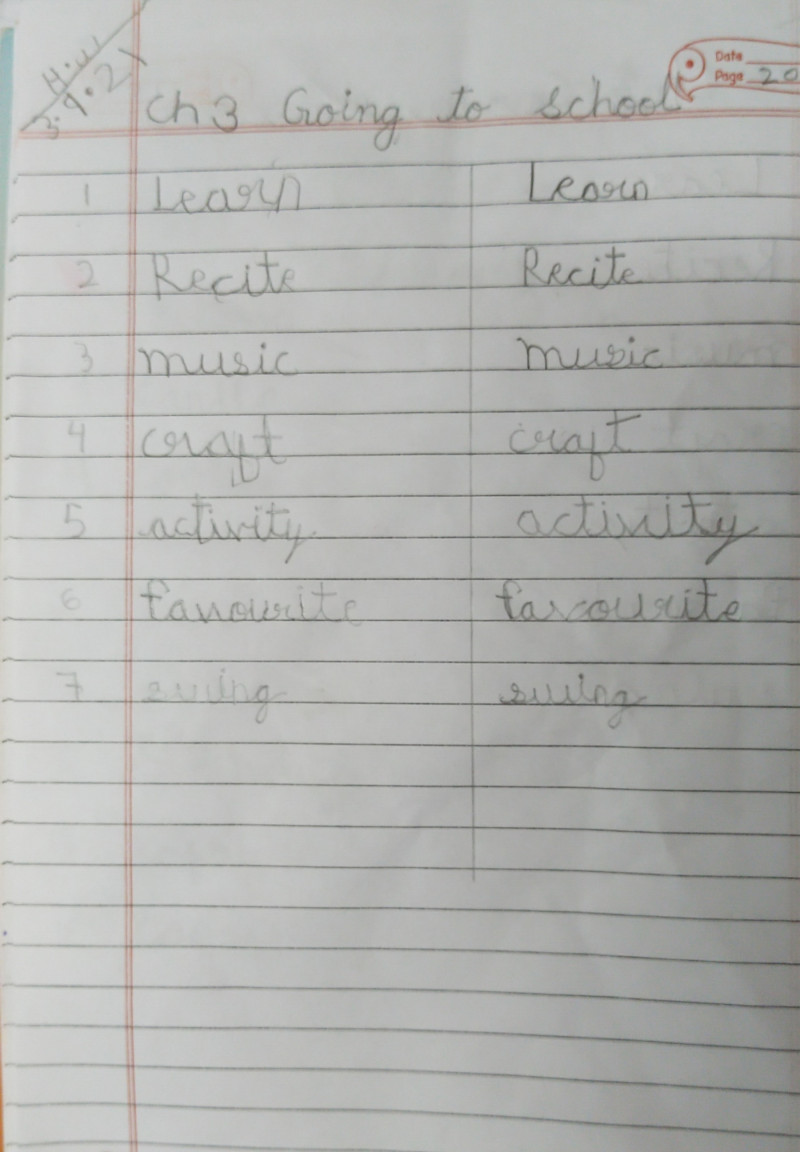 H.W
3.9.21
Date
Page 20
Ch 3 Going to school
1 Learn Learn
2 Recite Recite
3 music music
4 craft craft
5 activity activity
6 favourite favourite
7 swing swing